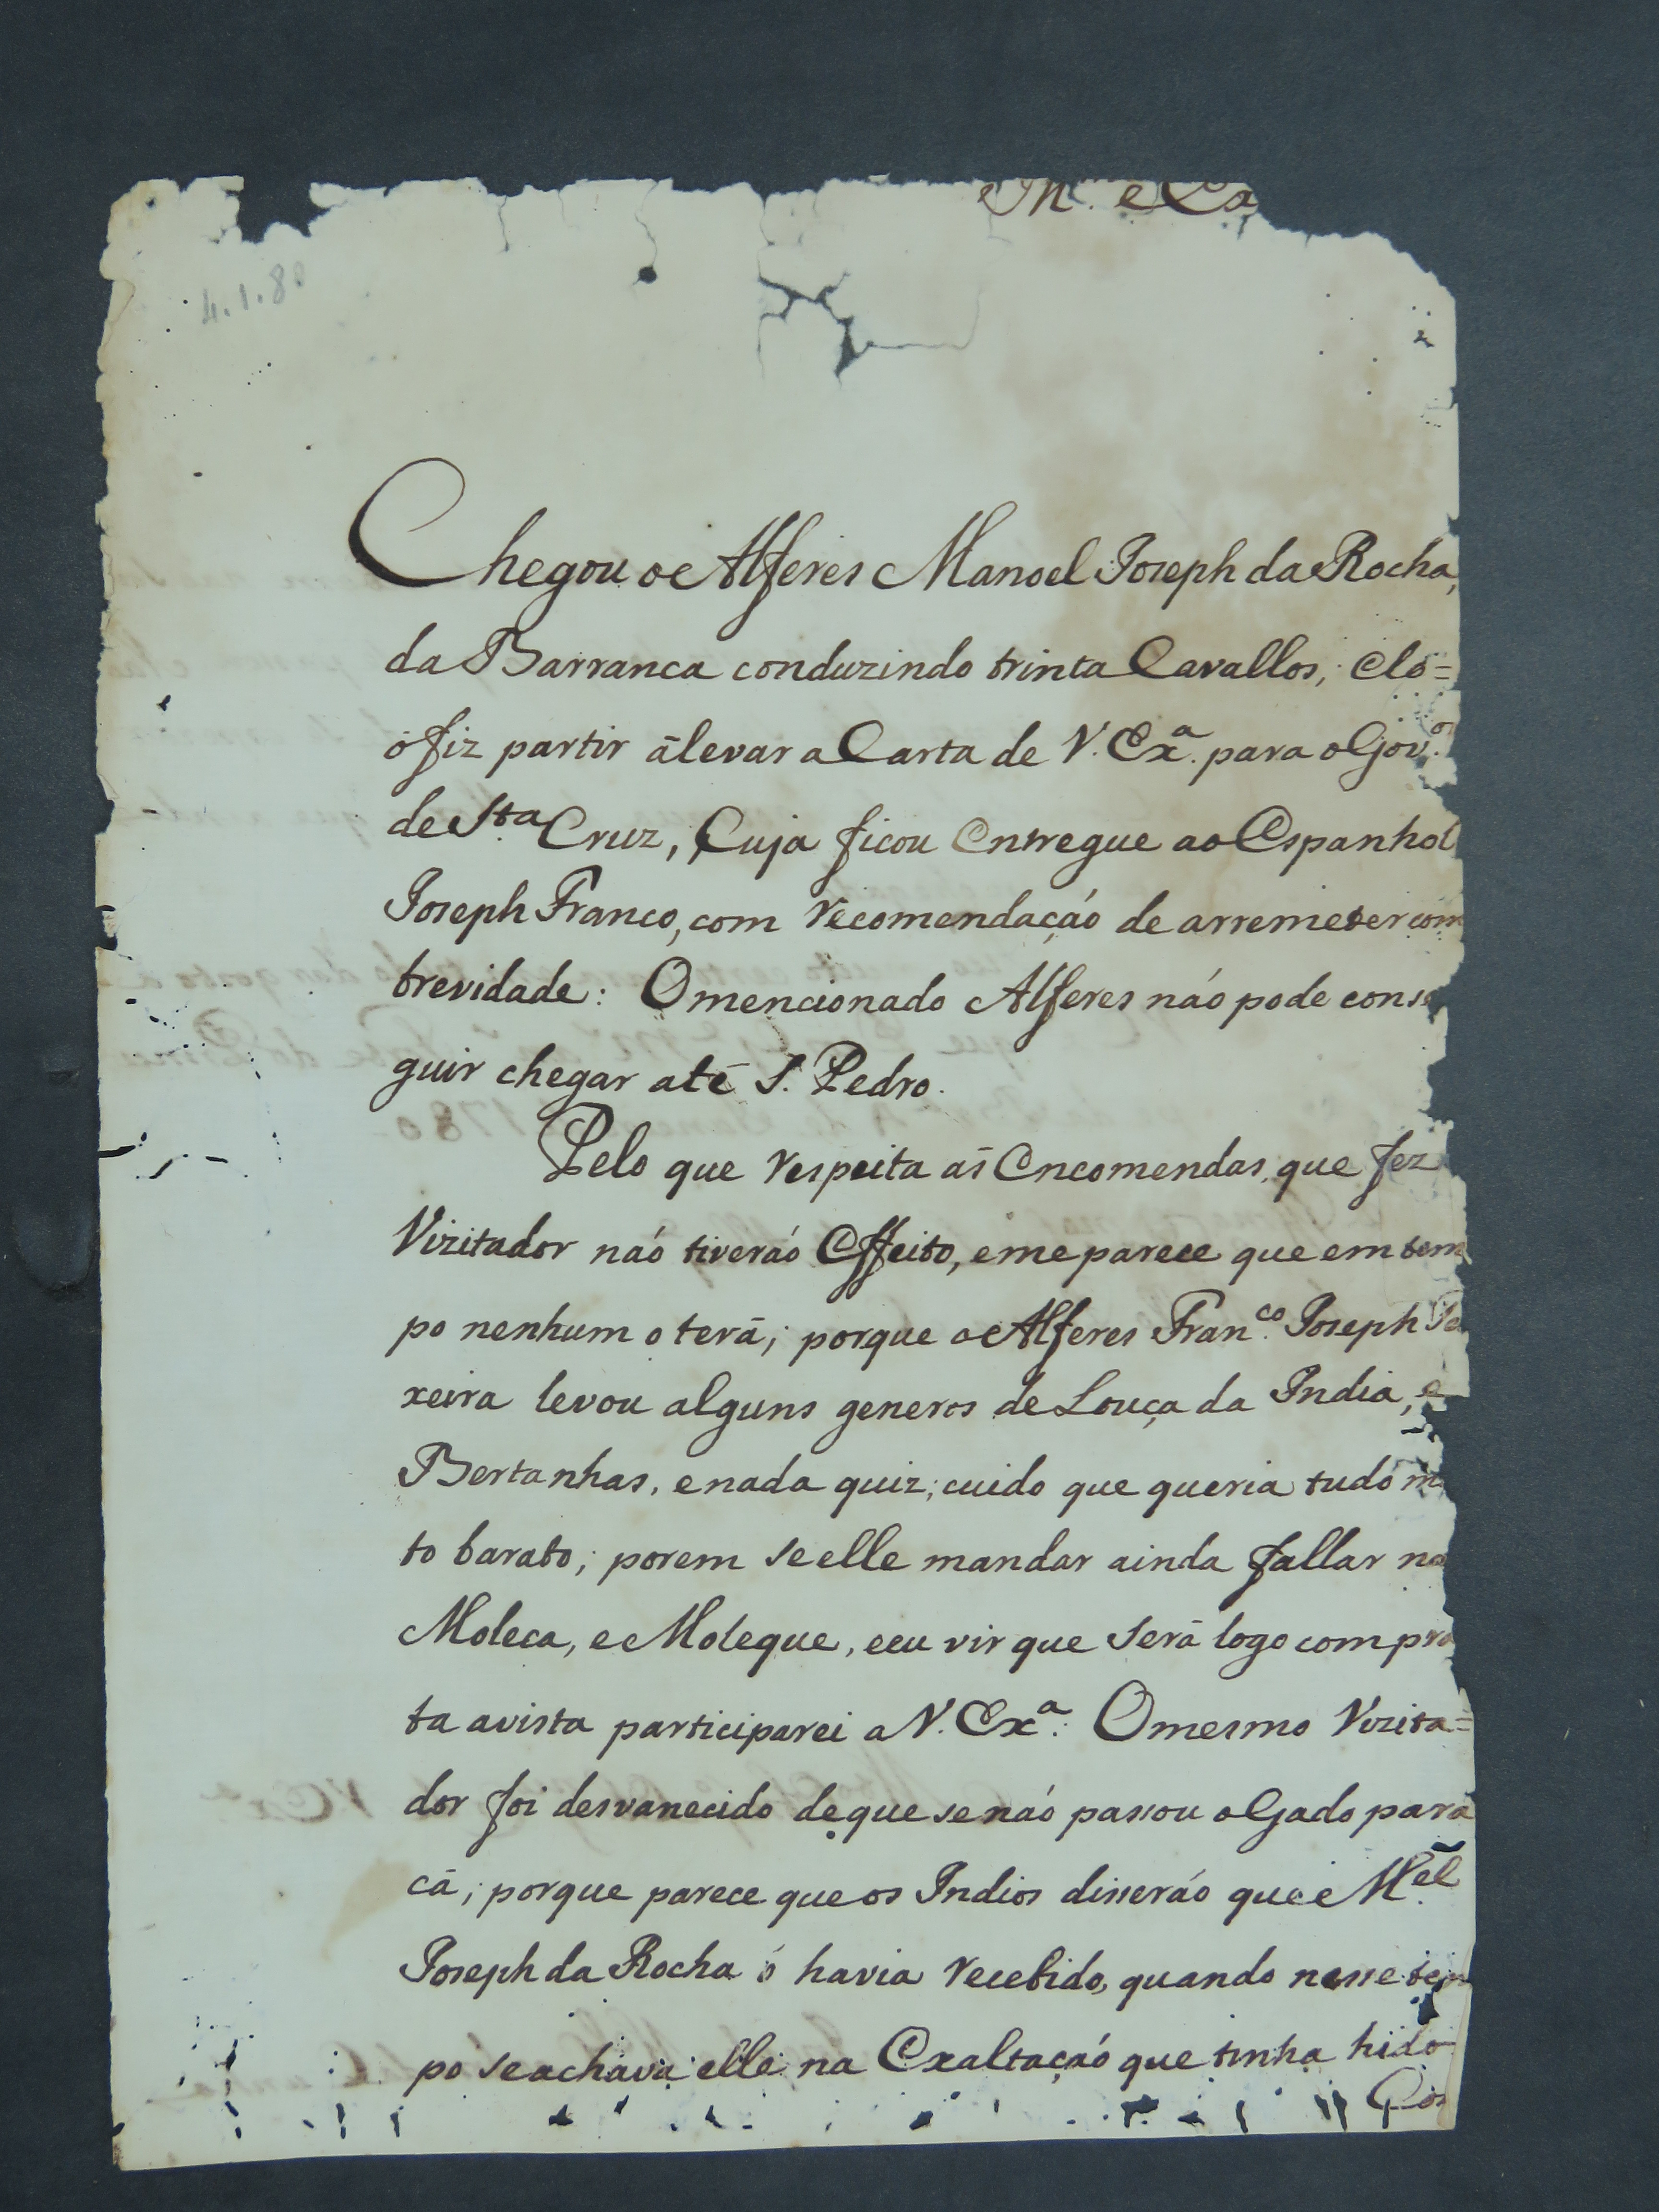 4.1.80
Chegou o Alferes Manoel Joseph da Rocha,
da Barranca conduzindo trinta Cavallos, e lo=
o fiz partir á levar a Carta de V. Exª. para o Gov.ºʳ
de Sta Cruz, Cuja ficou Entregue ao Espanhol
Joseph Franco, com recomendaçaó de arremeter com
brevidade: O mencionado Alferes naó pode conse
guir chegar até S. Pedro.
Pelo que respeita ás Encomendas, que fez
Vizitador naó tiveraó Effeito, e me parece que em tem
po nenhum o terá; porque o Alferes Fran.co Joseph Te
xeira levou alguns generos de Louça da India, e
Bertanhas, e nada quiz; cuido que queria tudo m
to barato; porem se elle mandar ainda fallar na
Moleca, e Moleque, e eu vir que será logo com pra
ta a vista participarei a V. Exª: O mesmo Vizita=
dor foi desvanecido de que se naó passou o Gado para
cá; porque parece que os Indios disseraó que Mel
Joseph da Rocha ó havia recebido, quando nesse tem
po se achava elle na Exaltaçaó que tinha hido